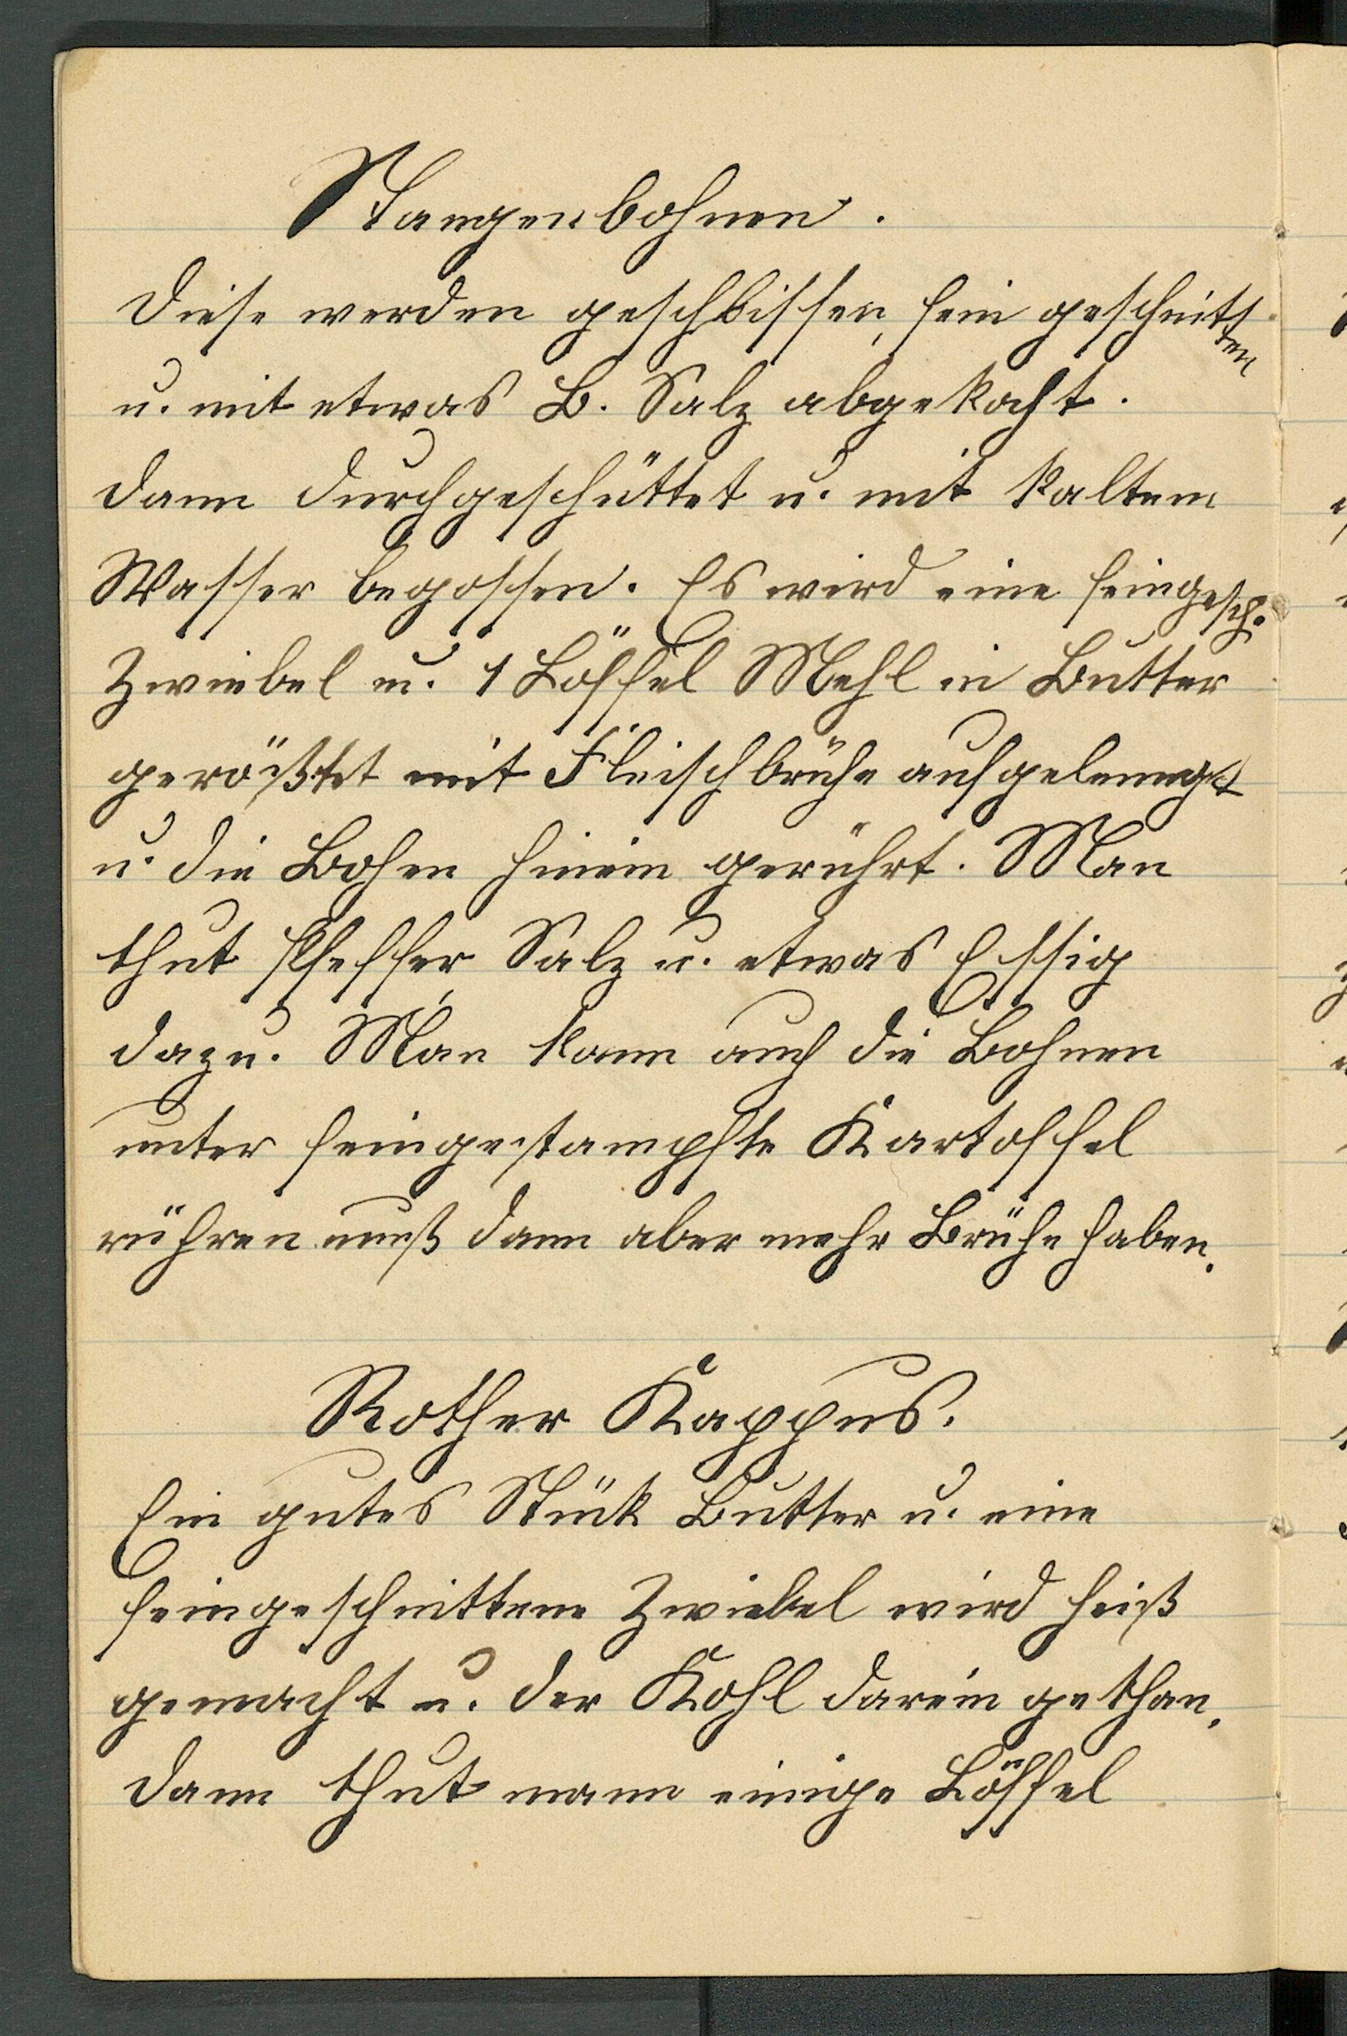 Stangenbohnen.
Diese werden geschlissen, fein geschnitten
u. mit etwas B. Salz abgekocht.
Dann durchgeschüttet u. mit kaltem
Wasser begossen. Es wird eine feingesch.
Zwiebel u. 1 Löffel Mehl in Butter
geröstet mit Fleischbrühe aufgelengt
u. die Bohen hinein gerührt. Man
thut Pfeffer, Salz u. etwas Essig
dazu. Man kann auch die Bohnen
unter feingestampfte Kartoffel
rühren muß dann aber mehr Brühe haben.
Rother Kappus.
Ein gutes Stück Butter u. eine
feingeschnittene Zwiebel wird heiß
gemacht u. der Kohl darein gethan.
Dann thut mann einige Löffel